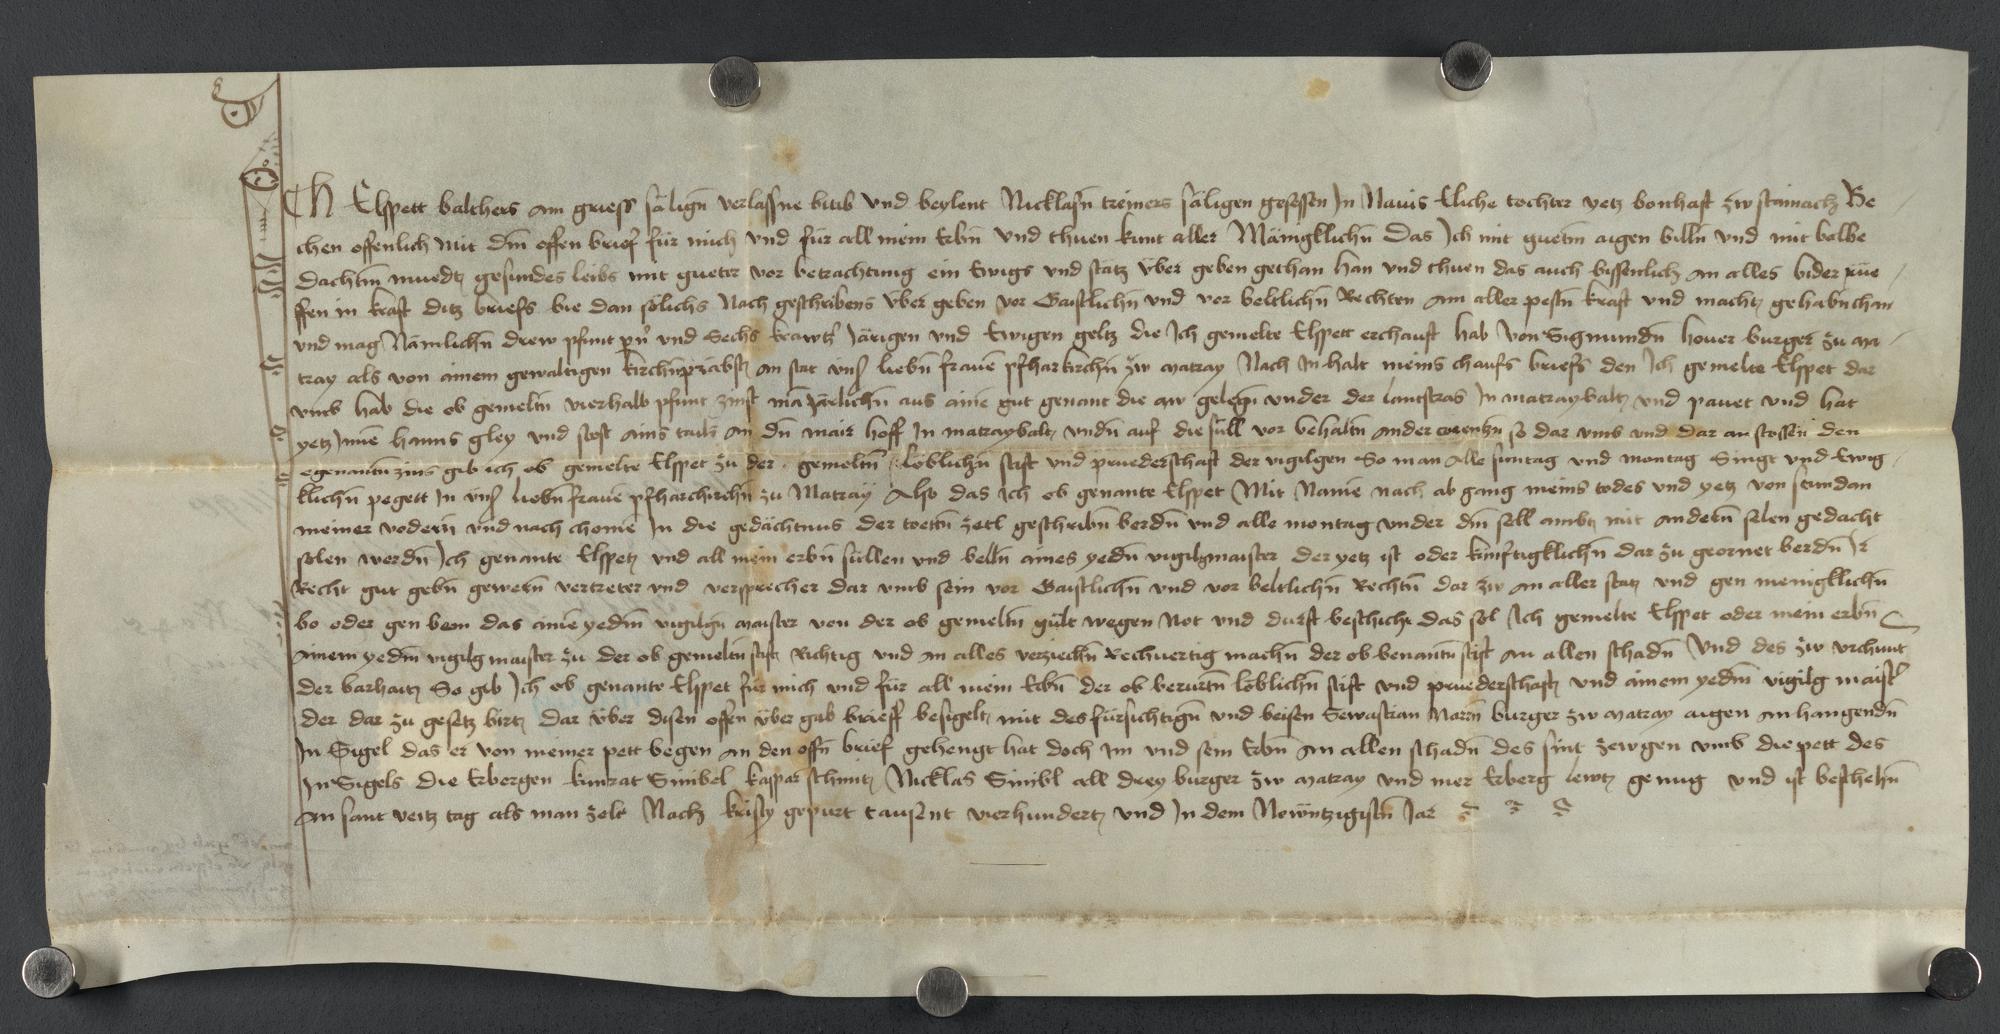 Ich Elspett balthers am griess säligñ verlassne bitib vnd beylent Nicklasñ treiners säligen gesessen In Navis Eliche tochter yetz bonhaft zw stainach Be
chen offenlich mit dm̄ offen brief für mich vnd für all mein Erbñ vnd thuen kunt aller Mänigklichñ das Ich mit guetm̄ aigen billñ vnd mit bolbe
dachtm̄ muedt gesundes leibs mit gueter vor betrachtung ein Ewigs vnd stätz über geben gethan han vnd thuen das auch bissenlich an alles bider rüe
ffen in kraft ditz briefs bie dan solichs Nach geschribens über geben vor Gaistlichñ vnd vor beltlichñ Rechten am aller pestñ kraft vnd macht gehabñ chan
vnd mag Nämlichñ drew pfunt pn̄ vnd Sechs krawtz Järigen vnd Ewigen geltz die Ich gemelte Elspett erchauft hab von Sigmundñ hover burger zu ma
tray als von ainem gewaltigen kirchñpräbst an stat vnß liebñ frawē pfharkirchñ zw matray Nach In halt meins chaufs briefs den Ich gemelte Elspet dar
vmb hab die ob gemeltñ vierhalb pfunt zinst mā Järlichñ aus ainē gut genant die aw gelegñ vnder der lantstras In matraybalt vnd pauet vnd hat
yetz Innē hanns gley vnd stost ains tails an dñ mair hoff In matraybalt vndñ auf die süll vor behaltñ ander so dar vmb vnd dar an stossen den
egenantñ zins gib ich ob gemelte Elspet zu der gemeltñ löblichñ stift vnd pruederschaft der vigilgen So man Alle suntag vnd montag Singt vnd Ewig
klichñ pegett In vnß liebñ frawē pfharchirchñ zu Matray Also das Ich ob genante Elspet Mit Namē nach ab gang meins todes vnd yetz von stundan
meiner vodern̄ vnd nach chomē In die gedächtnus der toetñ zetl geschribñ berdñ vnd alle montag vnder dm̄ sell ambt mit andern̄ selen gedacht
solen werdñ Ich genante Elspet vnd all mein erbñ süllen vnd bellñ aines yedñ vigilgmaister der yetz ist oder künftigklichñ dar zu geornet berdñ Ir
Recht gut gebñ gewern̄ vertreter vnd versprecher dar vmb sein vor Gaistlichñ vnd vor beltlichñ Rechtñ dar zw an aller statz vnd gen menigklichñ
bo oder gen bem das ainē yedm̄ vigilgñ maister von der ob gemeltñ gült wegen Not vnd durft beschiche das sol Ich gemelte Elspet oder mein erbñ
ainem yedm̄ vigilg maister zu der ob gemeltñ stift Richtig vnd an alles verziechñ Rechvertig machñ der ob benantñ stift an allen schadñ Vnd des zw vrchunt
der barhait So gib Ich ob genante Elspet für mich vnd für all mein Erbñ der ob berurtñ löblichñ stift vnd pruederschaft vnd ainem yedm̄ vigilg maister
der dar zu gesetz birt dar über disen offen über gab brieff besigelt mit des fürsichtigñ vnd beisen Sewastian Marñ burger zw matray aigen an hangendñ
In Sigel das er von meiner pett begen an den offñ brief gehengt hat doch Im vnd sein Erbñ an allen schadñ des sint zewgen vmb die pett des
In Sigels die Erbergen kunrat Sinibel kaspar schmit Nicklas Sinibl all drey burger zw matray vnd mer Erberg lewt genug vnd ist beschehñ
An sant veitz tag als man zelt Nach kristy gepurt tausent vierhundert vnd In dem Newntzigistñ Jar